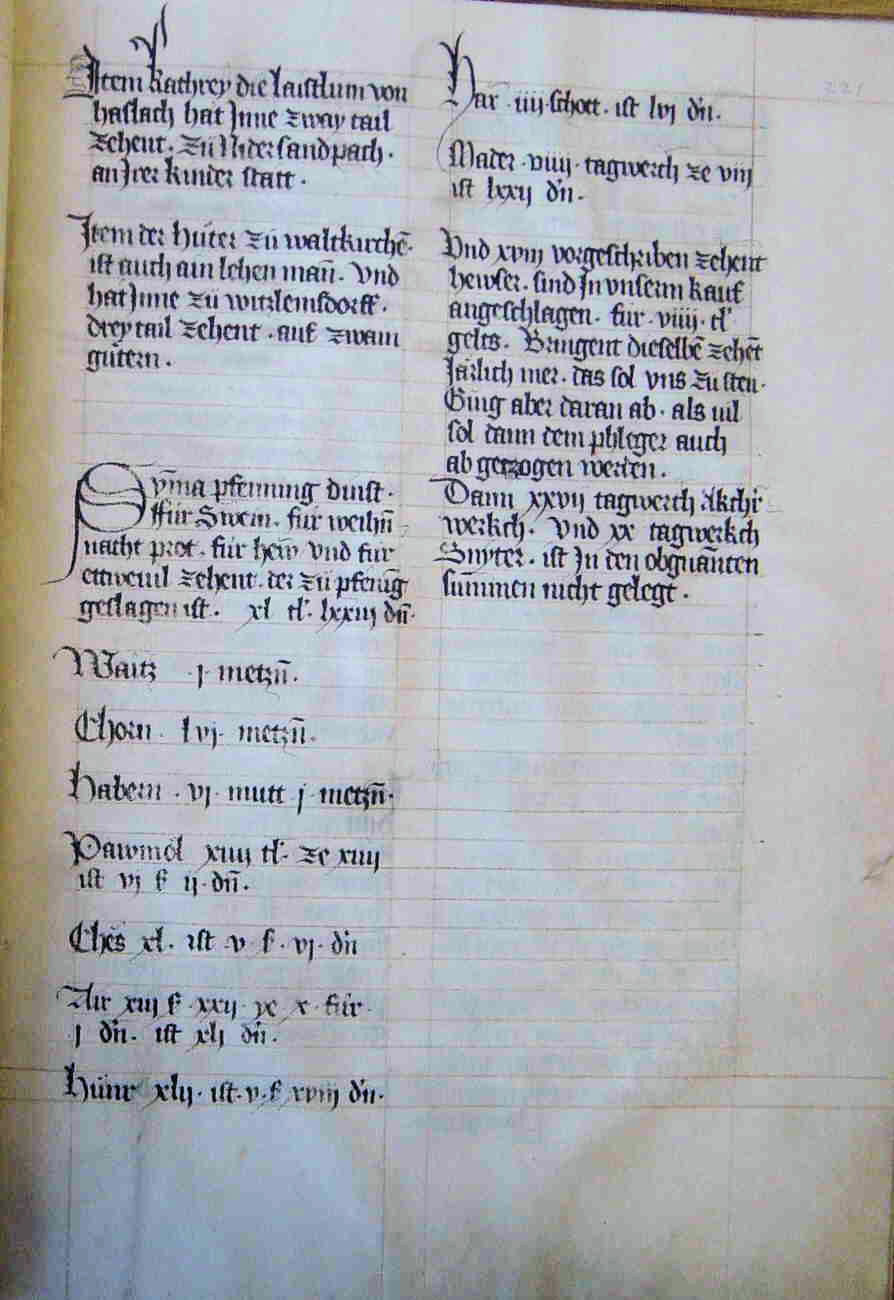 Item kathrey die laistlum von
haslach hat Inne zway tail
zehent. zu Nidersandpach.
an Irer kinder statt.
Item der huter zu waltkirchē.
ist auch ain lehen man̄. Vnd
hat Inne zu witzleinsdorff.
drey tail zehent. auf zwain
gütern.
Sūma pfenning dinst.
ffür Swein. für weihn̄
nacht prot. für hew vnd für
ettweuil zehent. der zu pfenīg
geslagen ist. xl tl. lxxiij dn̄.
Waitz j metzn̄.
Chorn. lvj. metzn̄.
Habern. vj. mutt j. metzn̄.
Pawmöl xiiij tl. ze xiiij
ist vj ß ij. dn̄.
Ches xl. ist v. ß. vj. dn̄
Air xiij ß. xxij ye x. für
j dn̄. ist xlj dn̄.
Hünr xlij. ist. v. ß xviij dn̄.
Har. iiij. schott. ist lvj dn̄.
Mader. viiij. tagwerch ze viij
ist lxxij dn̄.
Vnd xviij vorgeschriben zehent
hewser. sind In vnserm kauf
angeschlagen. für. viiij. tl
gelts. Bringent dieselbē zehēt
Järlich mer. das sol vns zusten.
Ging aber daran ab. als uil
sol dann dem phleger auch
ab getzogen werden.
Dann xxvij tagwerch Akcher
werkch. Vnd xx tagwerkch
Snyter. ist In den obgnan̄ten
sum̄men nicht gelegt.
221